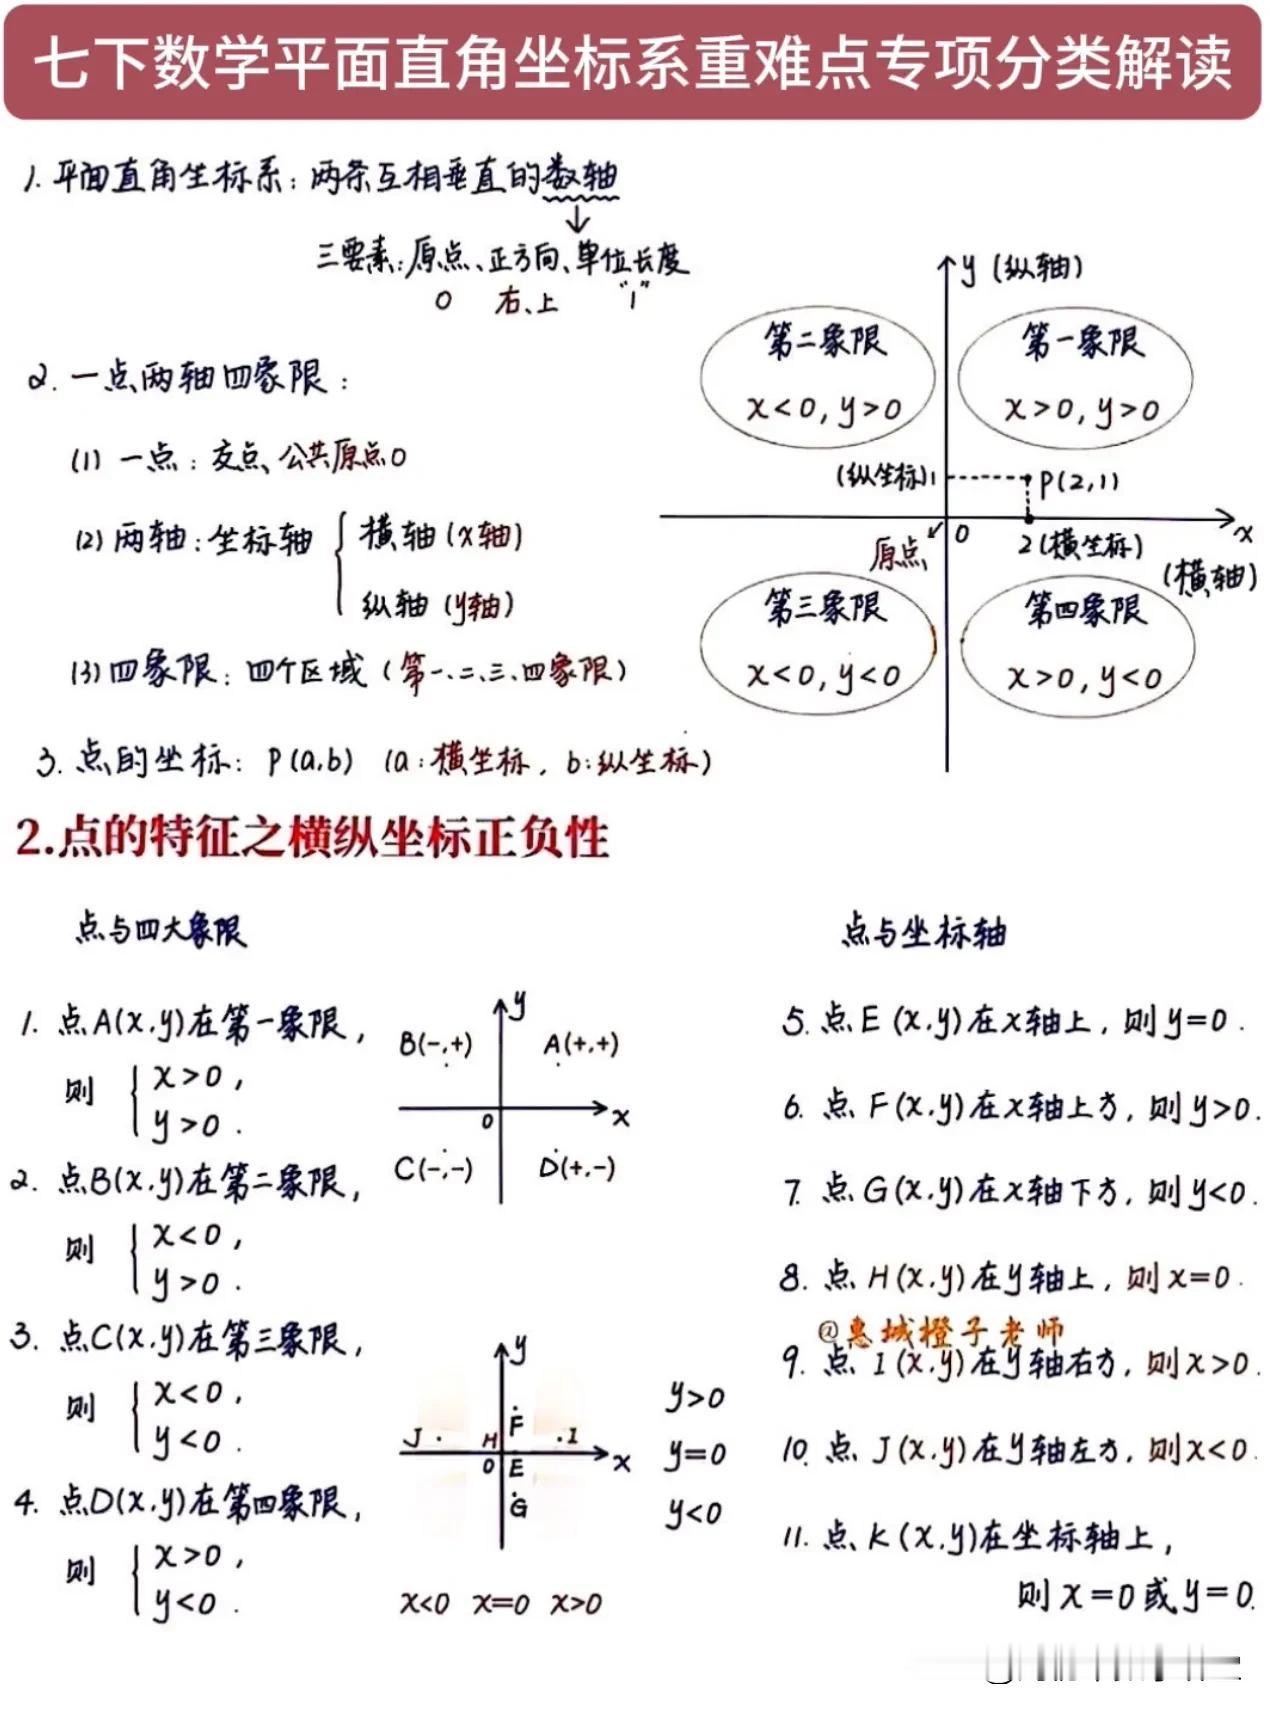 七下数学平面直角坐标系重难点专项分类解读
1. 平面直角坐标系：两条互相垂直的数轴
三要素：原点、正方向、单位长度
0 右、上 "1"
2. 一点两轴四象限：
(1) 一点：交点、公共原点0
(2) 两轴：坐标轴 { 横轴 (x轴)
纵轴 (y轴)
(3) 四象限：四个区域 (第一、二、三、四象限)
3. 点的坐标：P(a,b) (a:横坐标, b:纵坐标)
y (纵轴)
第二象限
x<0, y>0
第一象限
x>0, y>0
(纵坐标) 1
P(2,1)
原点
0
2 (横坐标)
x
(横轴)
第三象限
x<0, y<0
第四象限
x>0, y<0
2.点的特征之横纵坐标正负性
点与四大象限
1. 点A(x,y)在第一象限,
则 { x>0,
y>0.
2. 点B(x,y)在第二象限,
则 { x<0,
y>0.
3. 点C(x,y)在第三象限,
则 { x<0,
y<0.
4. 点D(x,y)在第四象限,
则 { x>0,
y<0.
y
B(-,+) A(+,+)
0 x
C(-,-) D(+,-)
y
F
J H I
0 E x
G
y>0
y=0
y<0
x<0 x=0 x>0
点与坐标轴
5. 点E (x,y)在x轴上, 则y=0.
6. 点F(x,y)在x轴上方, 则y>0.
7. 点G(x,y)在x轴下方, 则y<0.
8. 点H(x,y)在y轴上, 则x=0.
@惠城橙子老师
9. 点I(x,y)在y轴右方, 则x>0.
10. 点J(x,y)在y轴左方, 则x<0.
11. 点K(x,y)在坐标轴上,
则x=0或y=0.